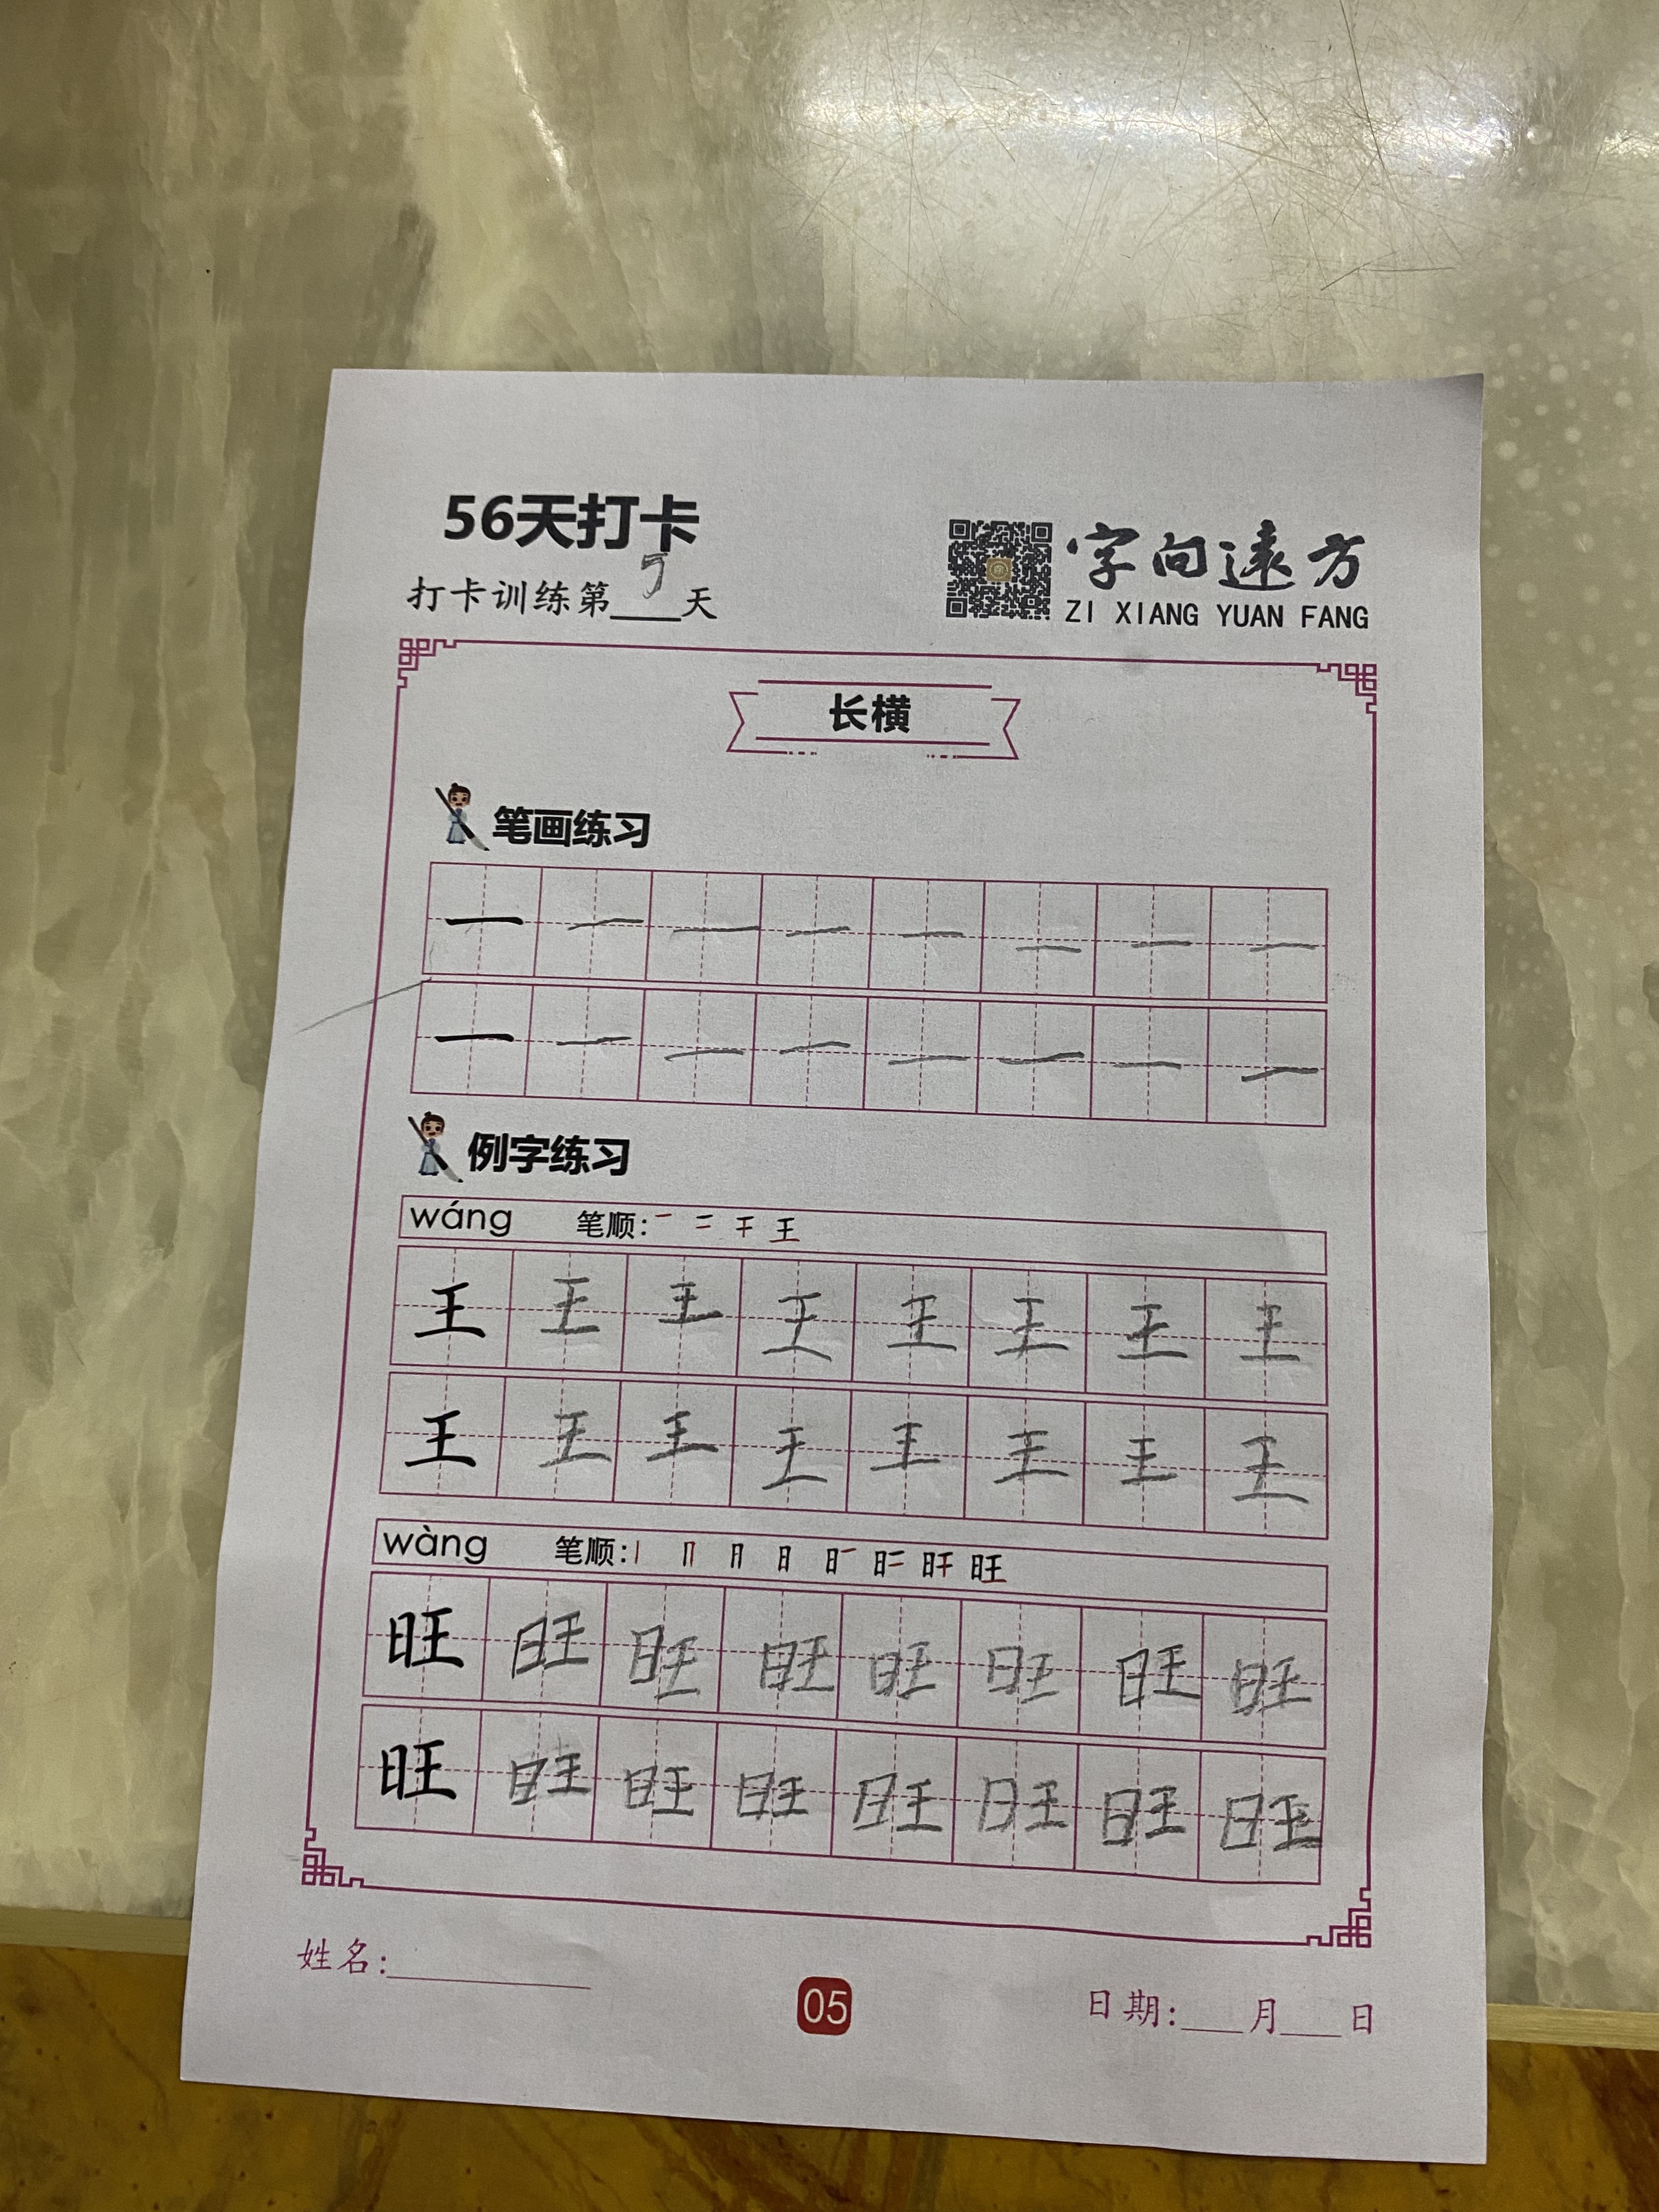 56天打卡
打卡训练第5天
字向遠方
ZI XIANG YUAN FANG
长横
笔画练习
一 一 一 一 一 一 一 一
一 一 一 一 一 一 一 一
例字练习
wáng 笔顺: 一 二 干 王
王 王 王 王 王 王 王 王
王 王 王 王 王 王 王 王
wàng 笔顺: 丨 冂 月 日 旺
旺 旺 旺 旺 旺 旺 旺 旺
旺 旺 旺 旺 旺 旺 旺 旺
姓名:
05
日期: 月 日